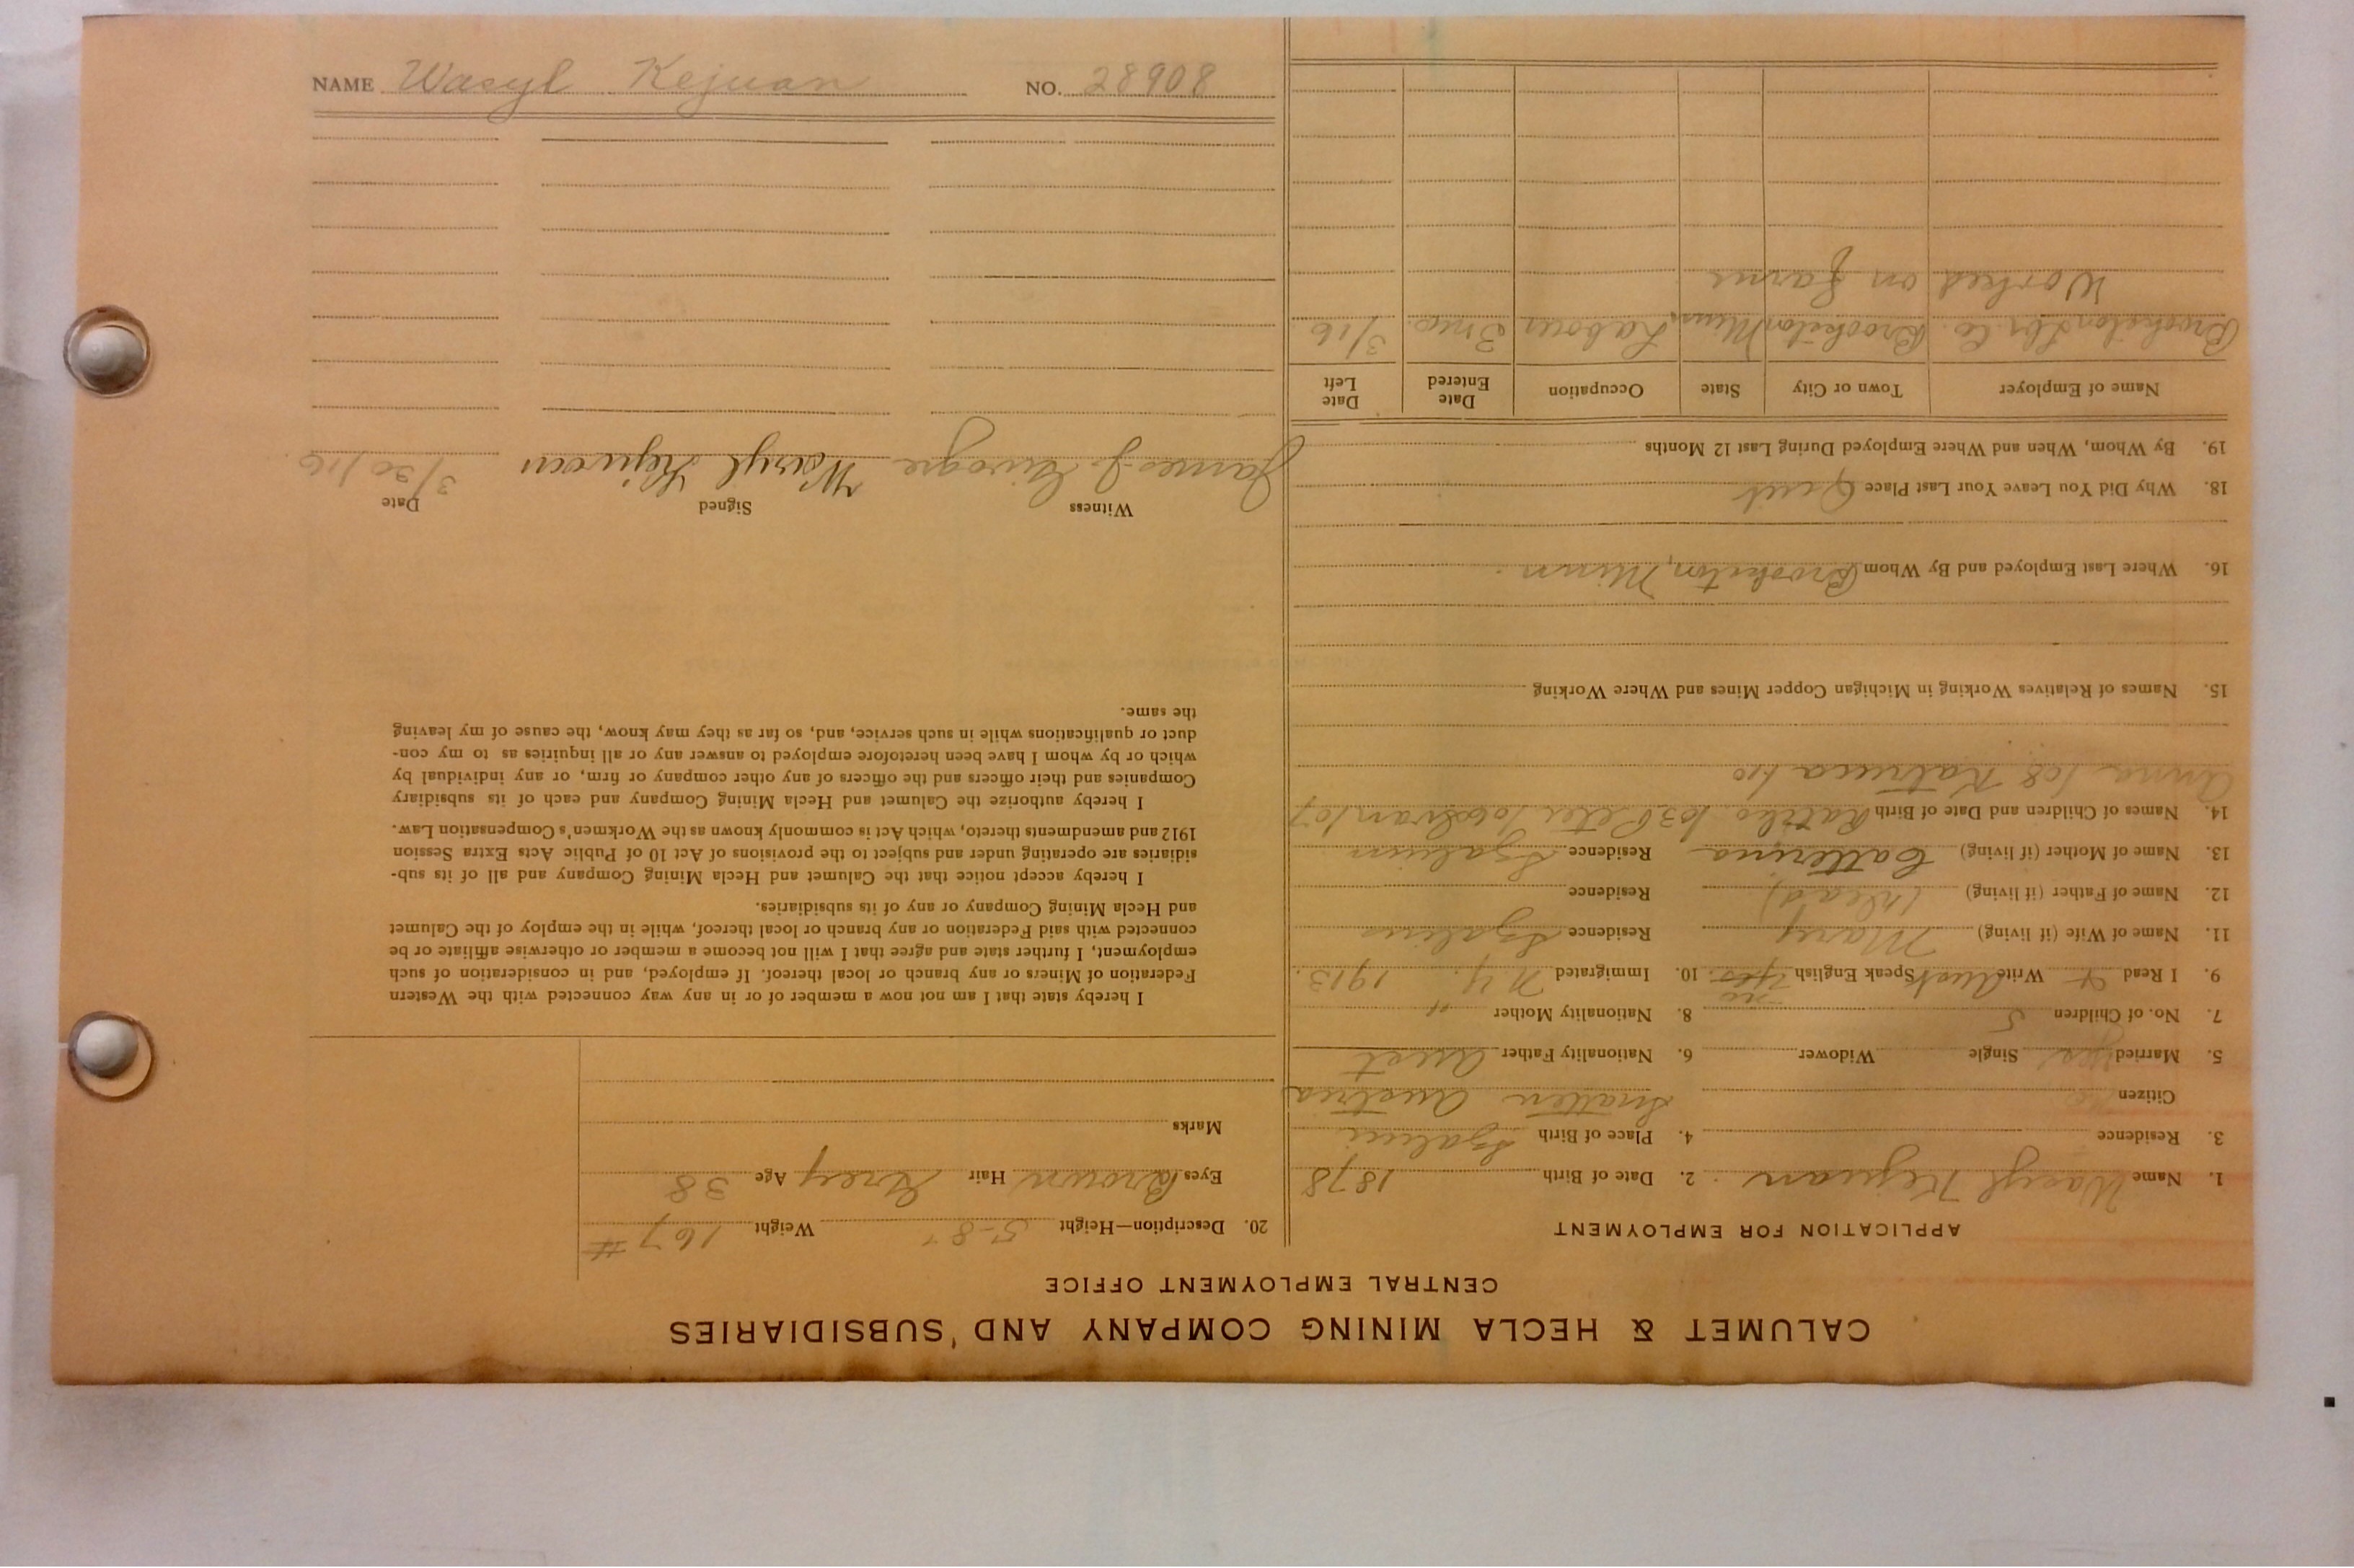 NAME Wasyl Kejuan NO. 28908
CALUMET & HECLA MINING COMPANY AND SUBSIDIARIES
CENTRAL EMPLOYMENT OFFICE
APPLICATION FOR EMPLOYMENT
1. Name Wasyl Kejuan 2. Date of Birth 1878
3. Residence 4. Place of Birth
Citizen Austria
5. Married Yes Single Widower 6. Nationality Father Aust
7. No. of Children 5 8. Nationality Mother "
9. I Read & Write Aust Speak English no 10. Immigrated N.Y. 1913.
11. Name of Wife (if living) Mary Residence
12. Name of Father (if living) (Dead) Residence
13. Name of Mother (if living) Catterina Residence
14. Names of Children and Date of Birth
Anna /08
15. Names of Relatives Working in Michigan Copper Mines and Where Working
16. Where Last Employed and By Whom Brookston, Minn.
18. Why Did You Leave Your Last Place Quit
19. By Whom, When and Where Employed During Last 12 Months
Name of Employer Town or City State Occupation Date Entered Date Left
Brookston Lbr. Co. Brookston Minn Labour 3 mo. 3/16
Worked on farm
20. Description—Height 5-8" Weight 167 #
Eyes Brown Hair Grey Age 38
Marks
I hereby state that I am not now a member of or in any way connected with the Western
Federation of Miners or any branch or local thereof. If employed, and in consideration of such
employment, I further state and agree that I will not become a member or otherwise affiliate or be
connected with said Federation or any branch or local thereof, while in the employ of the Calumet
and Hecla Mining Company or any of its subsidiaries.
I hereby accept notice that the Calumet and Hecla Mining Company and all of its sub-
sidiaries are operating under and subject to the provisions of Act 10 of Public Acts Extra Session
1912 and amendments thereto, which Act is commonly known as the Workmen's Compensation Law.
I hereby authorize the Calumet and Hecla Mining Company and each of its subsidiary
Companies and their officers and the officers of any other company or firm, or any individual by
which or by whom I have been heretofore employed to answer any or all inquiries as to my con-
duct or qualifications while in such service, and, so far as they may know, the cause of my leaving
the same.
Witness Signed Date
James J. Wasyl Kejuan 3/30/16